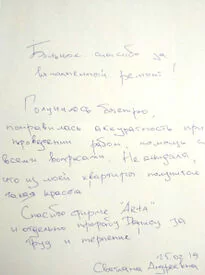 Большое спасибо за
выполненный ремонт!
Получилось быстро,
понравилась аккуратность при
проведении работ, помощь в
всеми вопросами. Не ожидала,
что из моей квартиры получится
такая красота
Спасибо фирме "Арта"
и отдельно прорабу за
труд и терпение!
25.02.19
Светлана Андреевна